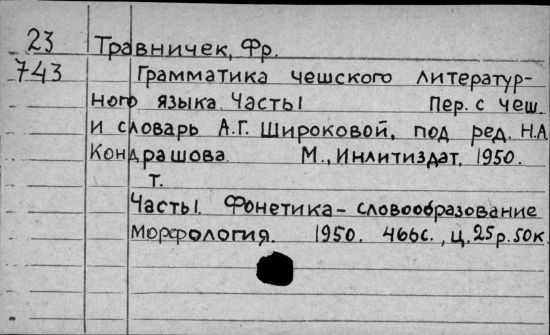 23 Травничек, Фр.
743 Грамматика чешского литератур-
ного языка. Часть 1 Пер. с чеш.
и словарь А.Г. Широковой, под ред. Н.А.
Кондрашова. М., Инлитиздат, 1950.
т.
Часть 1. Фонетика - словообразование
морфология. 1950. 466с., ц. 25р. 50к.